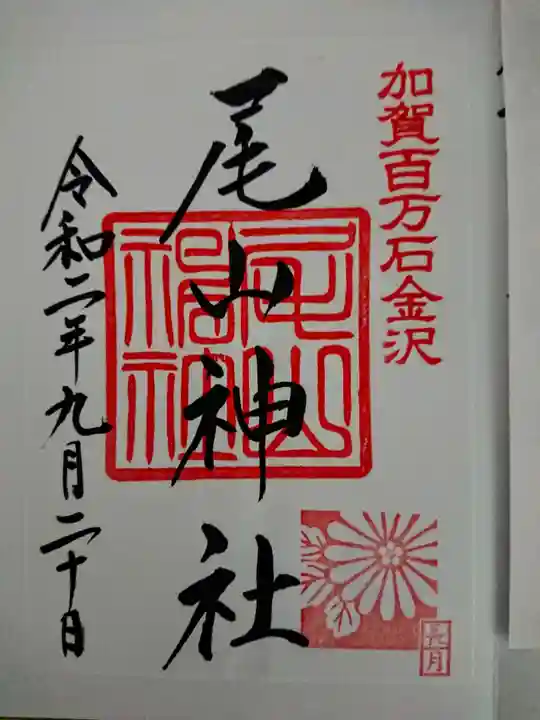 加賀百万石金沢
尾山神社
尾山神社
長月
令和二年九月二十日